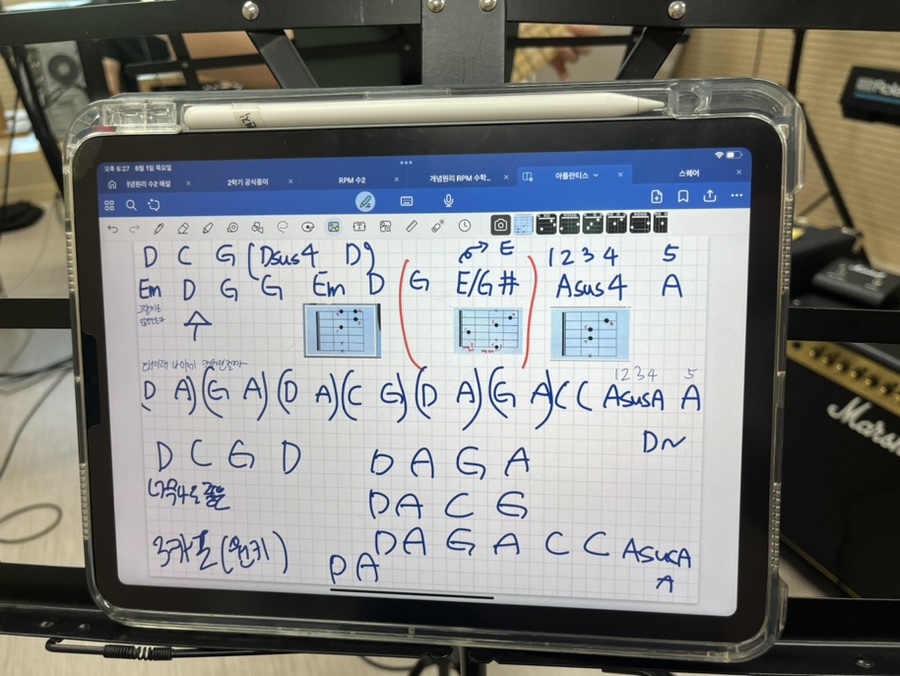 오후 6:27 8월 1일 목요일
개념원리 수2 해설 2학기 공식종이 RPM 수2 개념원리 RPM 수학... 아틀란티스 스퀘어
D C G (Dsus4 D) E 1 2 3 4 5
Em D G G Em D (G E/G#) Asus4 A
1 2 3 4 5
(D A)(G A)(D A)(C G)(D A)(G A)(C C AsusA A
D~
D C G D D A G A
D A C G
3카홈(원키) D A G A C C AsusA
D A A
Marsh